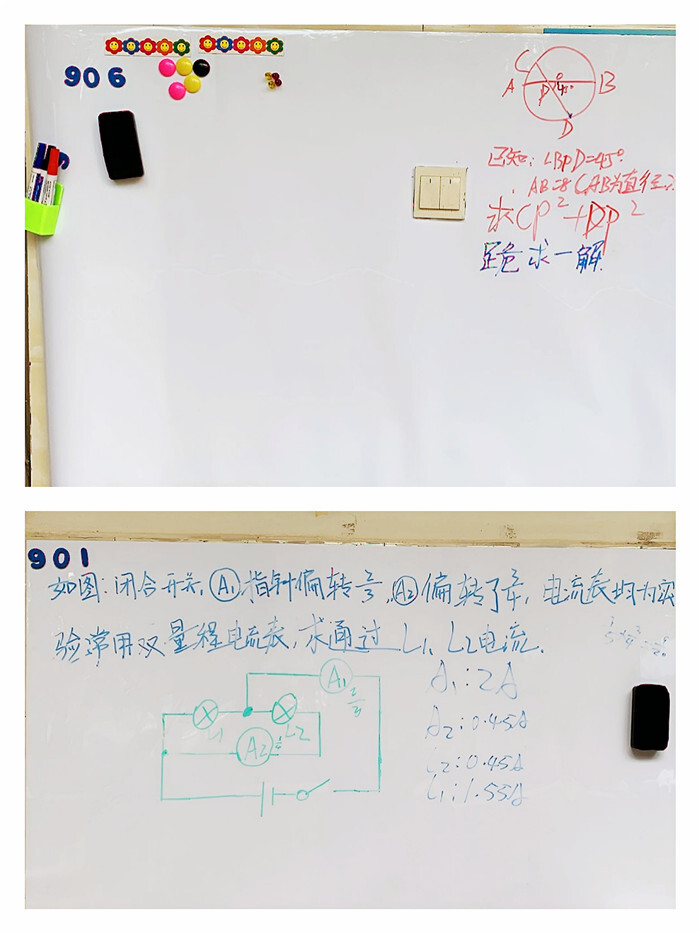 906
C
A
P
O
45°
B
D
已知:∠BPD=45°
AB=8(AB为直径)
求CP²+DP²
跪求一解
901
如图:闭合开关,A₁指针偏转⅔,A₂偏转了¾,电流表均为实
验常用双量程电流表,求通过L₁、L₂电流.
A₁:2A
A₂:0.45A
I₂:0.45A
I₁:1.55A
A₁
L₁
L2
A2